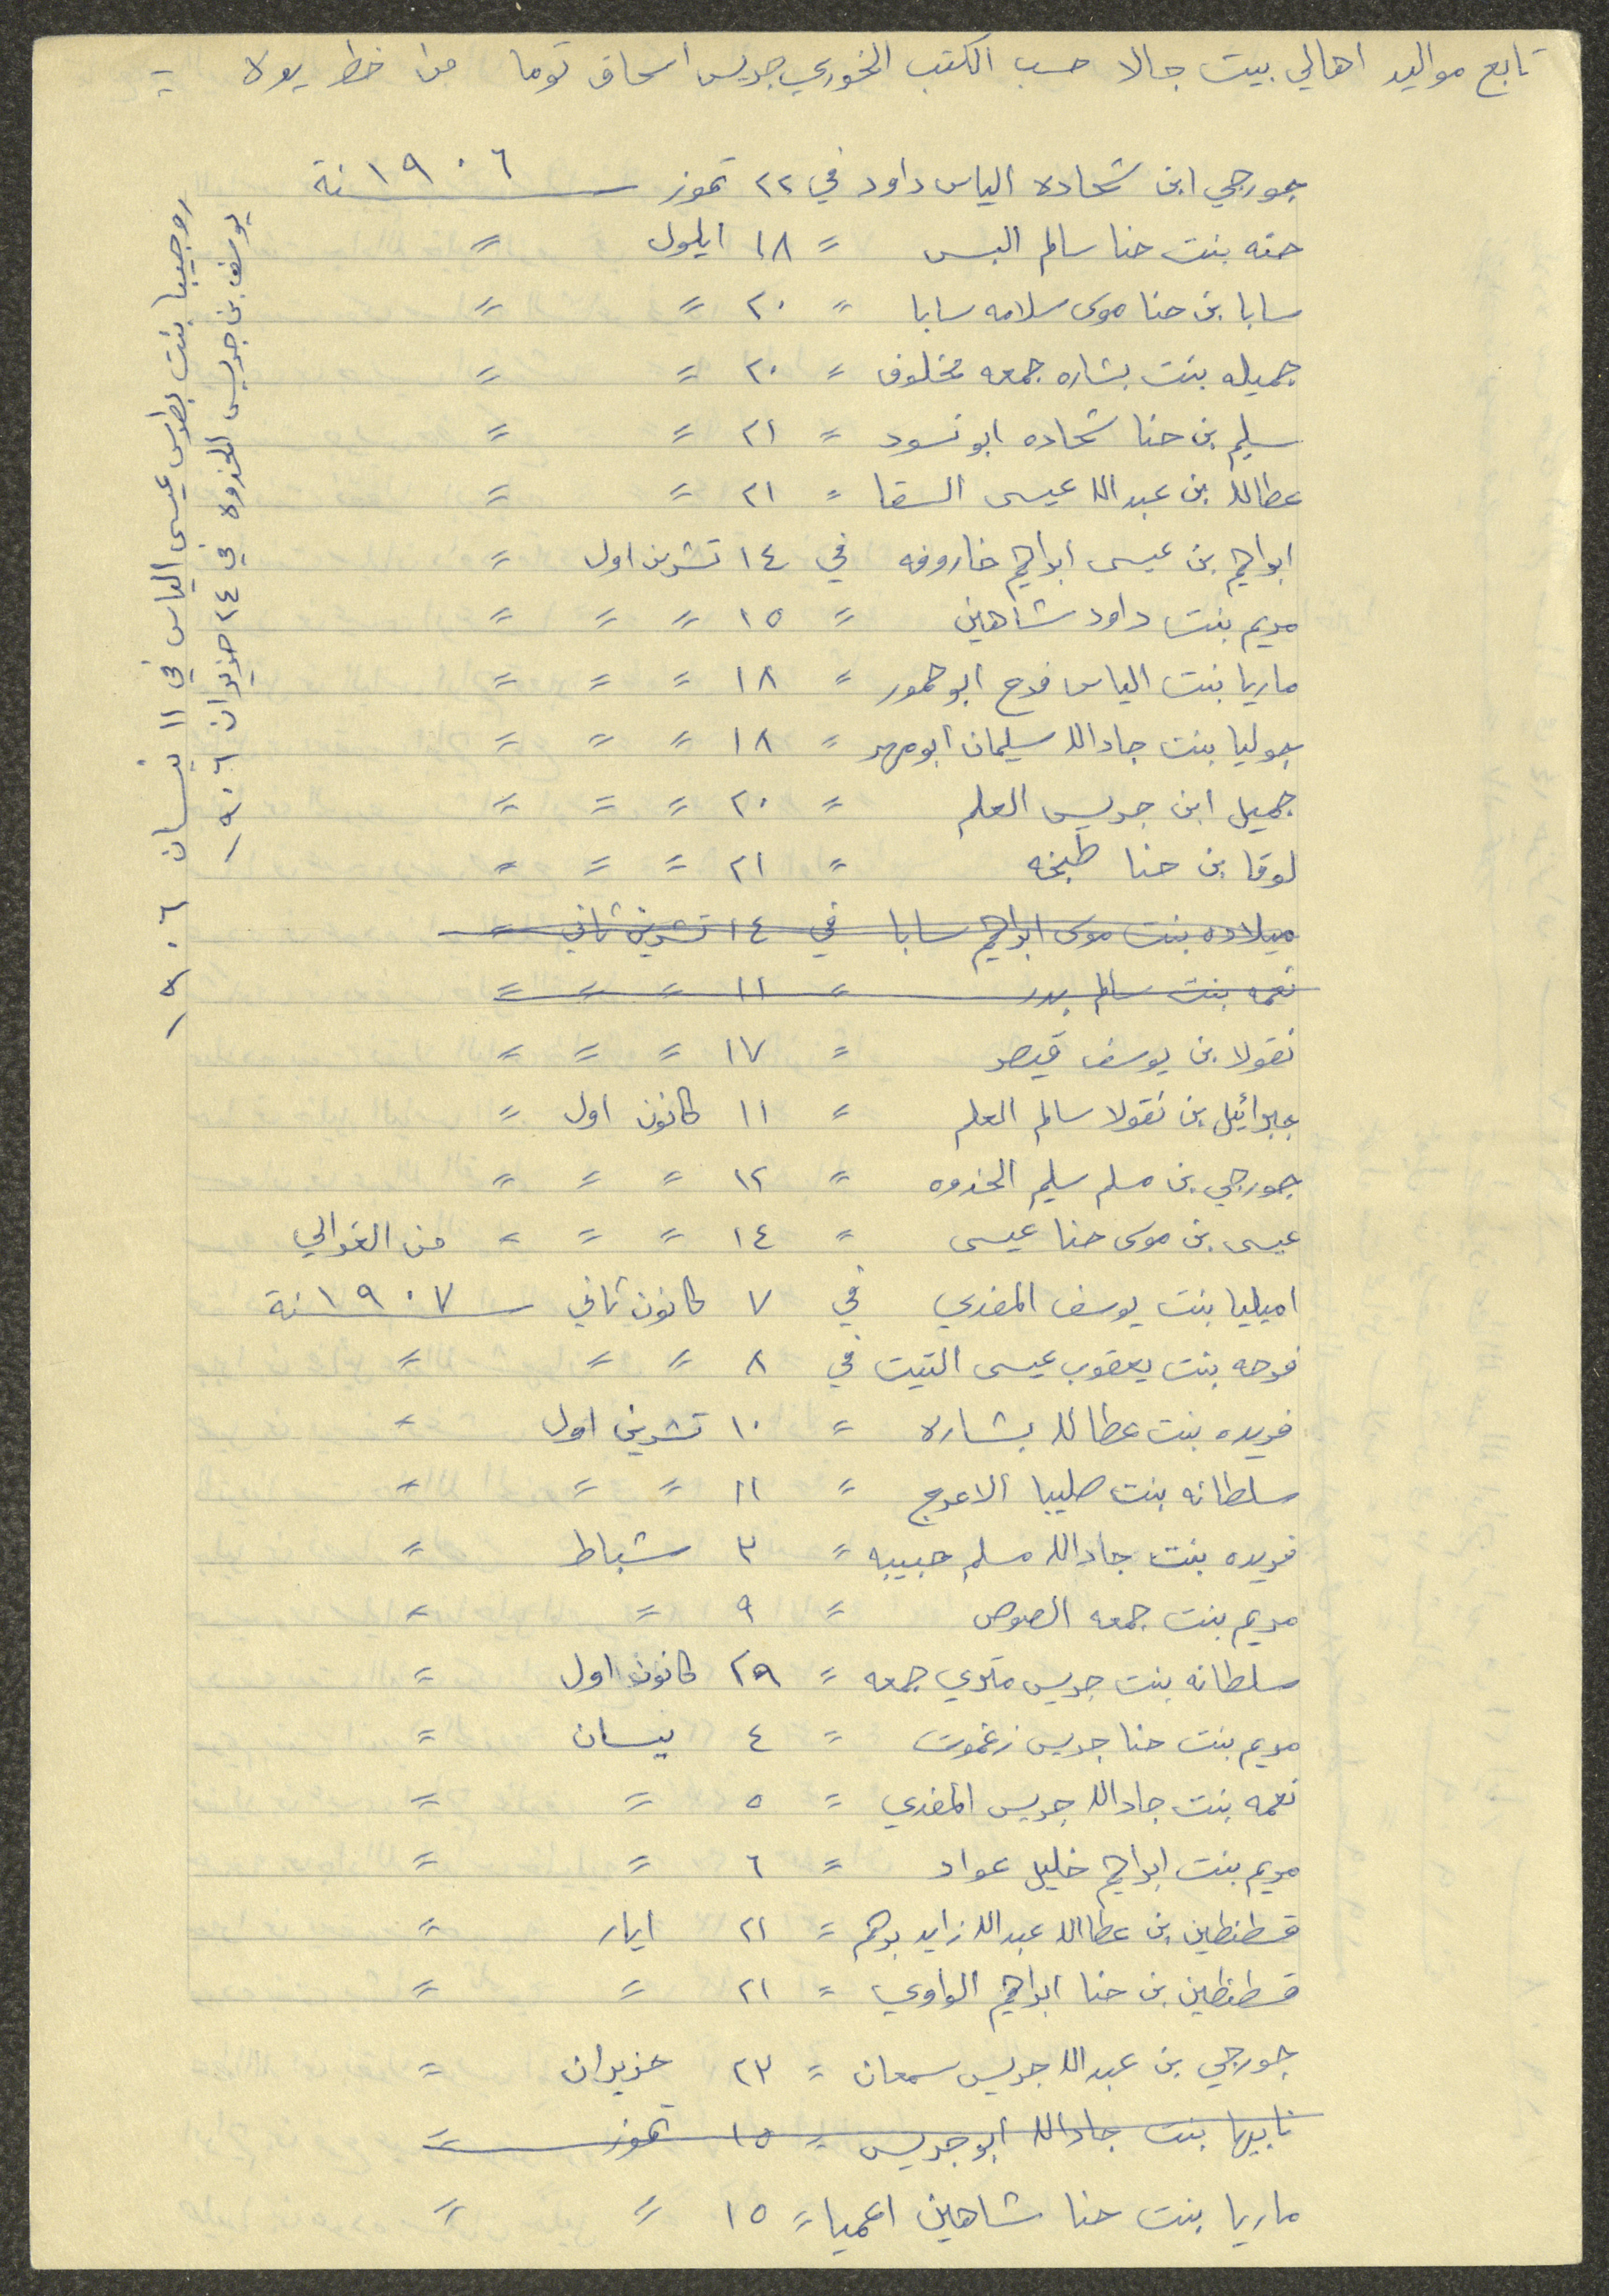 تابع مواليد اهالي بيت جالا حسب الكتب الخوري جريس اسحاق توما من خط يده =
جورجي ابن شحاده الياس داود في ٢٢ تموز سنة ١٩٠٦
حنه بنت حنا سالم البس = ١٨ ايلول =
سابا بن حنا موسى سلامه سابا = ٢٠ = =
جميله بنت بشاره جمعه مخلوف = ٢٠ = =
سليم بن حنا شحاده ابو نسود = ٢١ = =
عطالله بن عبدالله عيسى السقا = ٢١ = =
ابراهيم بن عيسى ابراهيم خاروفه في ١٤ تشرين اول =
مريم بنت داود شاهين = ١٥ = = =
ماريا بنت الياس فرح ابو حمور = ١٨ = = =
جوليا بنت جادالله سليمان ابو مهر = ١٨ = = =
جميل ابن جريس العلم = ٢٠ = = =
لوقا بن حنا طبخه = ٢١ = = =
ميلاده بنت موسى ابراهيم سابا في ١٤ تشرين ثاني =
نعمه بنت سالم بدر = ١١ = = =
نقولا بن يوسف قيصر = ١٧ = = =
جبرائيل بن نقولا سالم العلم = ١١ كانون اول =
جورجي بن مسلم سليم الخدوه = ١٢ = = =
عيسى بن موسى حنا عيسى = ١٤ = = = من الغوالي
اميليا بنت يوسف المفدي في ٧ كانون ثاني سنة ١٩٠٧
فرحه بنت يعقوب عيسى التيت في ٨ = = =
فريده بنت عطالله بشاره = ١٠ تشرين اول =
سلطانه بنت صليبا الاعرج = ١١ = = =
فريده بنت جادالله مسلم حبيبه = ٣ شباط =
مريم بنت جمعه الصوص = ٩ = =
سلطانه بنت جريس متري جمعه = ٢٩ كانون اول =
مريم بنت حنا جريس زغموت = ٤ نيسان =
نعمه بنت جادالله جريس المفدي = ٥ = =
مريم بنت ابراهيم خليل عواد = ٦ = =
قسطنطين بن عطاالله عبدالله زايد برهم = ٢١ ايار =
قسطنطين بن حنا ابراهيم الواوي = ٢١ = =
جورجي بن عبدالله جريس سمعان = ٢٣ حزيران =
نابيها بنت جادالله ابو جريس = ١٥ تموز =
ماريا بنت حنا شاهين اعميا = ١٥ = =
روجيبا بنت بطرس عيسى الياس في ١١ نيسان ١٩٠٦
يوسف بن جريس الخدوه في ٢٤ حزيران ١٩٠٦